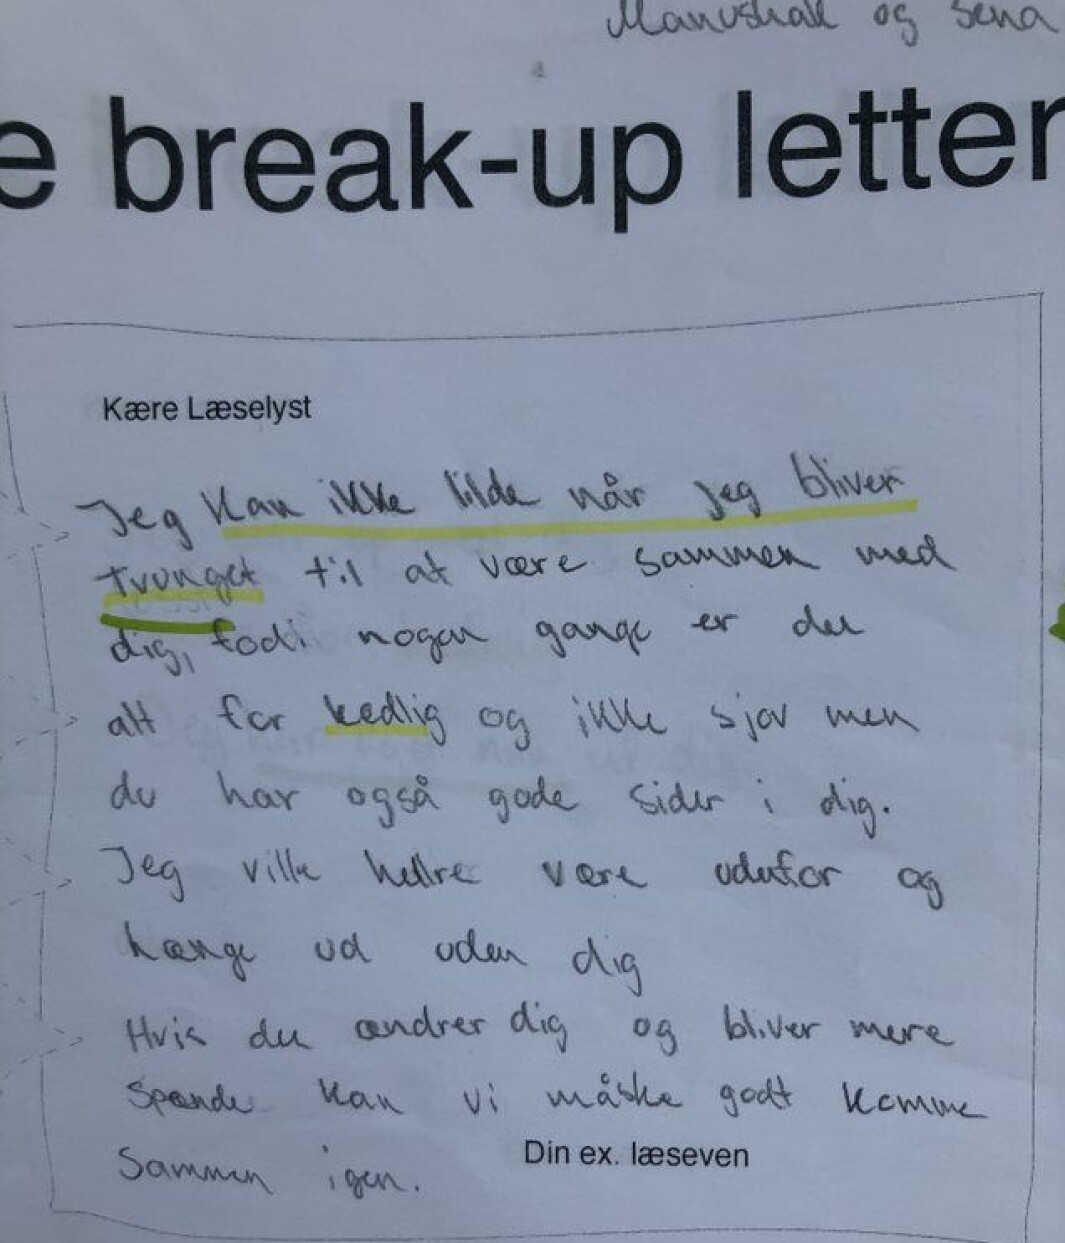 Manushak og Sena
e break-up letter
Kære Læselyst
Jeg kan ikke lilde når jeg bliver
tvunget til at være sammen med
dig, fodi nogen gange er du
alt for kedlig og ikke sjov men
du har også gode sider i dig.
Jeg ville hellre være udenfor og
hænge ud uden dig
Hvis du ændrer dig og bliver mere
spænde kan vi måske godt komme
sammen igen.
Din ex. læseven